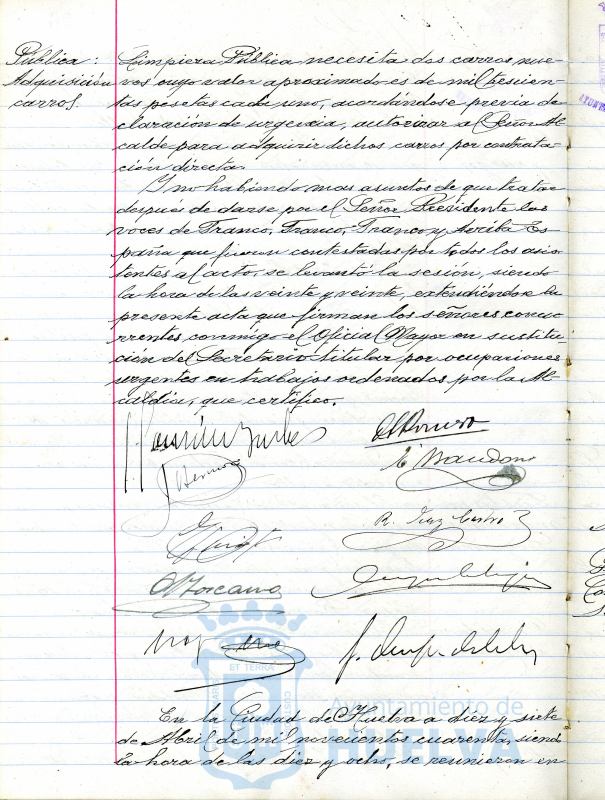 Pública:
Adquisición
carros.
Limpieza Pública necesita dos carros nue-
vos cuyo valor aproximado es de mil trescien-
tas pesetas cada uno, acordándose previa de-
claración de urgencia, autorizar al Señor Al-
calde para adquirir dichos carros por contrata-
ción directa.
Y no habiendo mas asuntos de que tratar
despues de darse por el Señor Presidente las
voces de Franco, Franco, Franco y Arriba Es-
paña que fueron contestadas por todos los asis-
tentes al acto, se levantó la sesión, siendo
la hora de las veinte y veinte, extendiéndose la
presente acta que firman los señores concu-
rrentes, conmigo el Oficial Mayor en sustitu-
ción del Secretario titular por ocupaciones
urgentes en trabajos ordenados por la Al-
caldía, que certifico.
R. Diaz Castro
En la Ciudad de Huelva a diez y siete
de Abril de mil novecientos cuarenta, siendo
la hora de las diez y ocho, se reunieron en
Ayuntamiento de
HUELVA